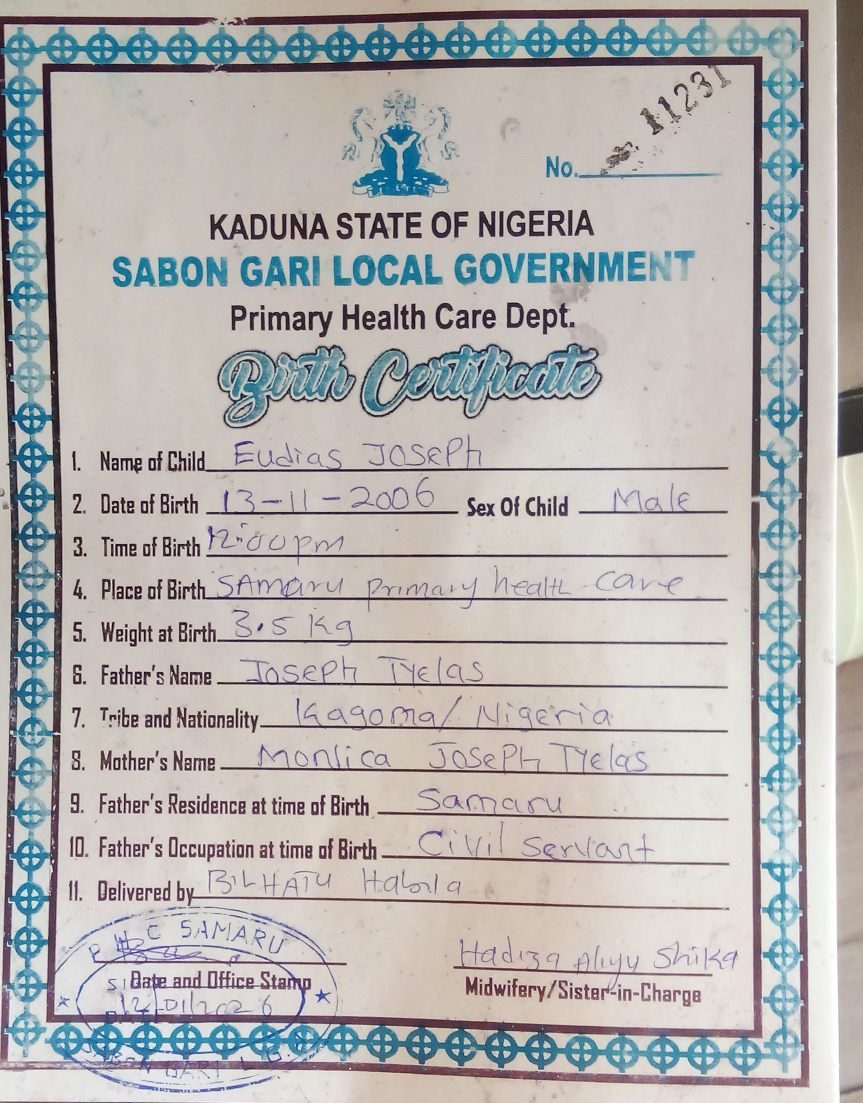 No. 11231
KADUNA STATE OF NIGERIA
SABON GARI LOCAL GOVERNMENT
Primary Health Care Dept.
Birth Certificate
1. Name of Child Eudias JOSEPh
2. Date of Birth 13-11-2006 Sex Of Child Male
3. Time of Birth 12:00pm
4. Place of Birth SAmaru primary health care
5. Weight at Birth 3.5 Kg
6. Father's Name JOSEPh Tyelas
7. Tribe and Nationality Kagoma/ Nigeria
8. Mother's Name Monlica JOSEPh Tyelas
9. Father's Residence at time of Birth Samaru
10. Father's Occupation at time of Birth Civil Servant
11. Delivered by BILHATU Habila
P H C SAMARU
Hadiza Aliyu Shika
Date and Office Stamp
Midwifery/Sister-in-Charge
12/01/2026
SABON GARI L.G.A